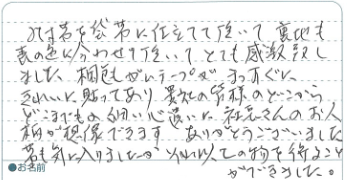 付帯を袋帯に仕立てて頂いて 裏地も
表の色に合わせて頂いて とても感激致し
ました。梱包もガムテープがまっすぐに
きれいに貼ってあり 貴社の皆様のどこから
どこまでもの細い心遣いに 社長さんのお人
柄が想像できます ありがとうございました
帯も気に入りましたが それ以上の物を得ること
ができました。
●お名前